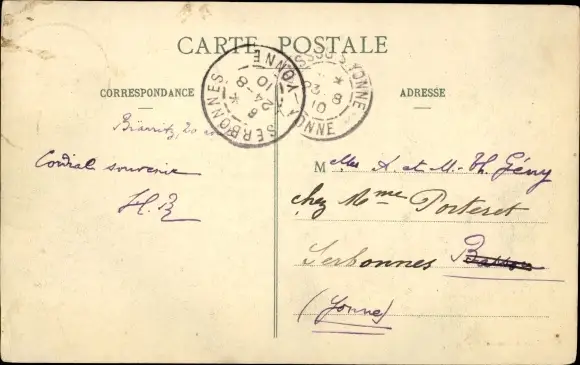 CARTE POSTALE
CORRESPONDANCE
ADRESSE
SERBONNES YONNE
8 * 24 -8 10
YONNE
* 8
10
Biarritz, 20
Cordial souvenir
H. B
M elles A. et M. Th. Gény
chez Mme Porteret
Serbonnes
(Yonne)